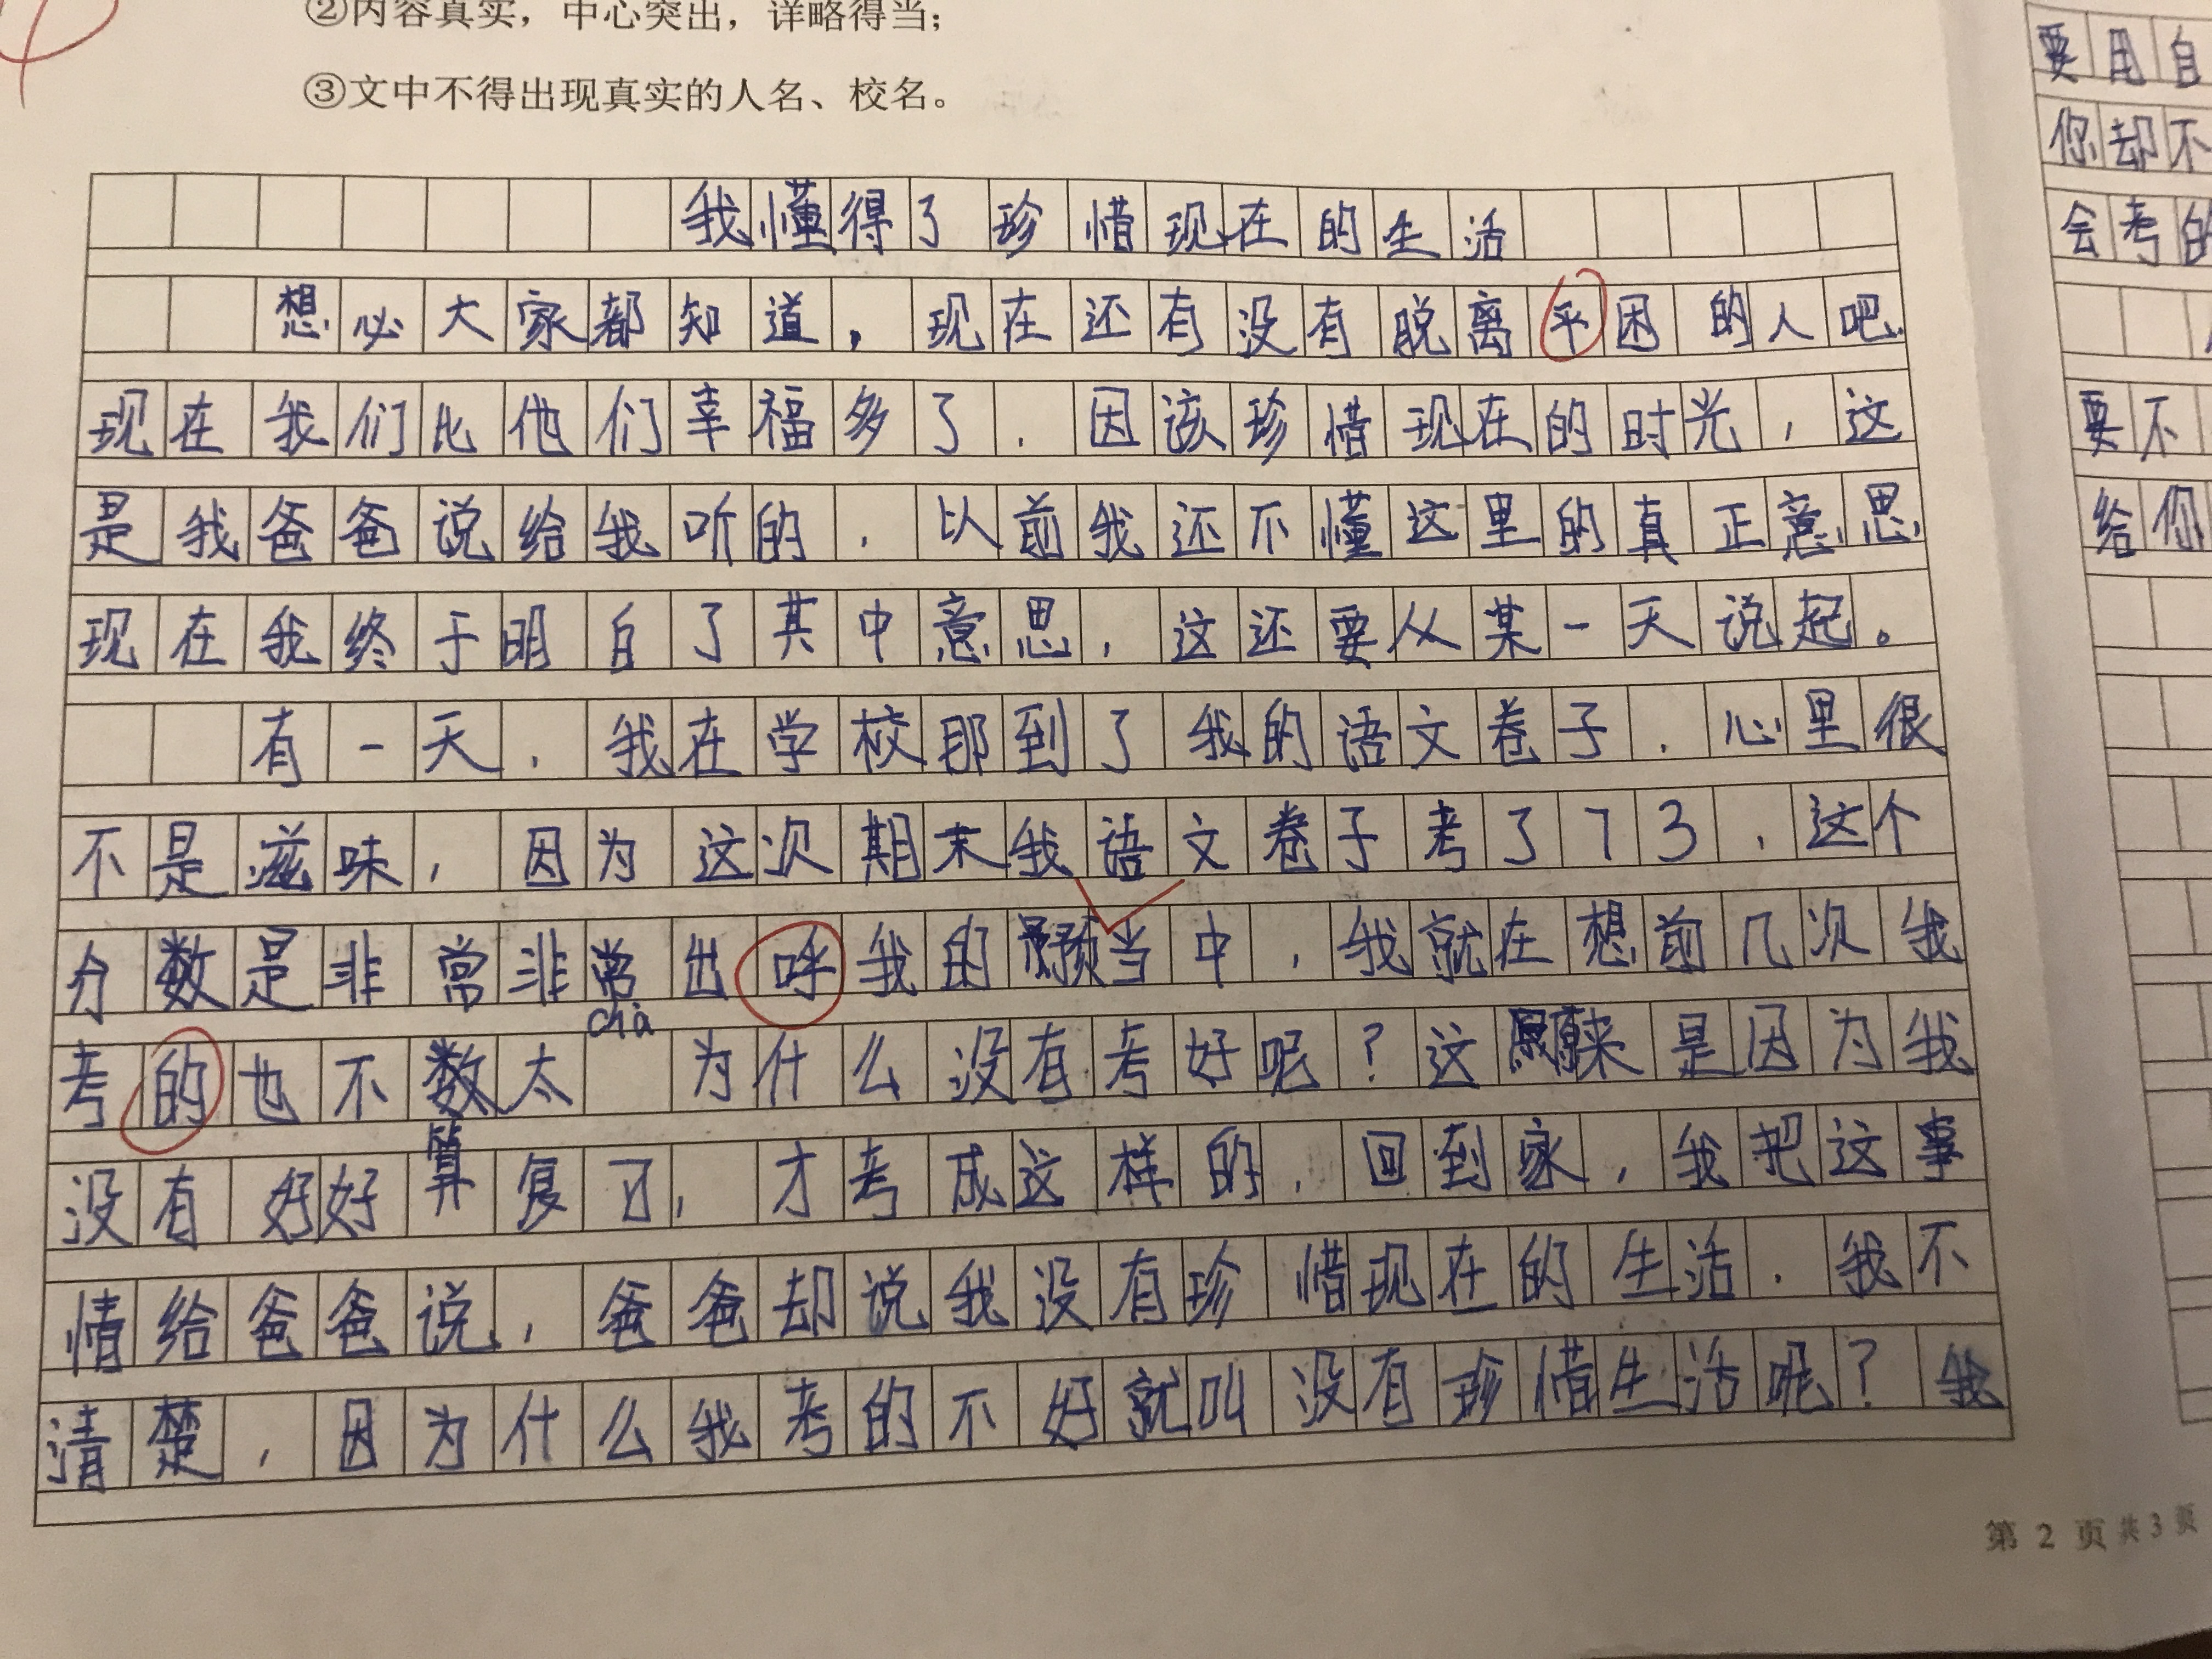 ②内容真实，中心突出，详略得当；
③文中不得出现真实的人名、校名。
我懂得了珍惜现在的生活
想必大家都知道，现在还有没有脱离平困的人吧.
现在我们比他们幸福多了.因该珍惜现在的时光，这
是我爸爸说给我听的，以前我还不懂这里的真正意思,
现在我终于明白了其中意思，这还要从某一天说起。
有一天.我在学校那到了我的语文卷子.心里很
不是滋味，因为这次期末我语文卷子考了73，这个
分数是非常非常出呼我的预当中，我就在想前几次我
考的也不算太chà为什么没有考好呢？这原来是因为我
没有好好复习，才考成这样的，回到家，我把这事
情给爸爸说，爸爸却说我没有珍惜现在的生活.我不
清楚，因为什么我考的不好就叫没有珍惜生活呢？我
第2页共3页
要用自
你却不
会考的
要不
给你